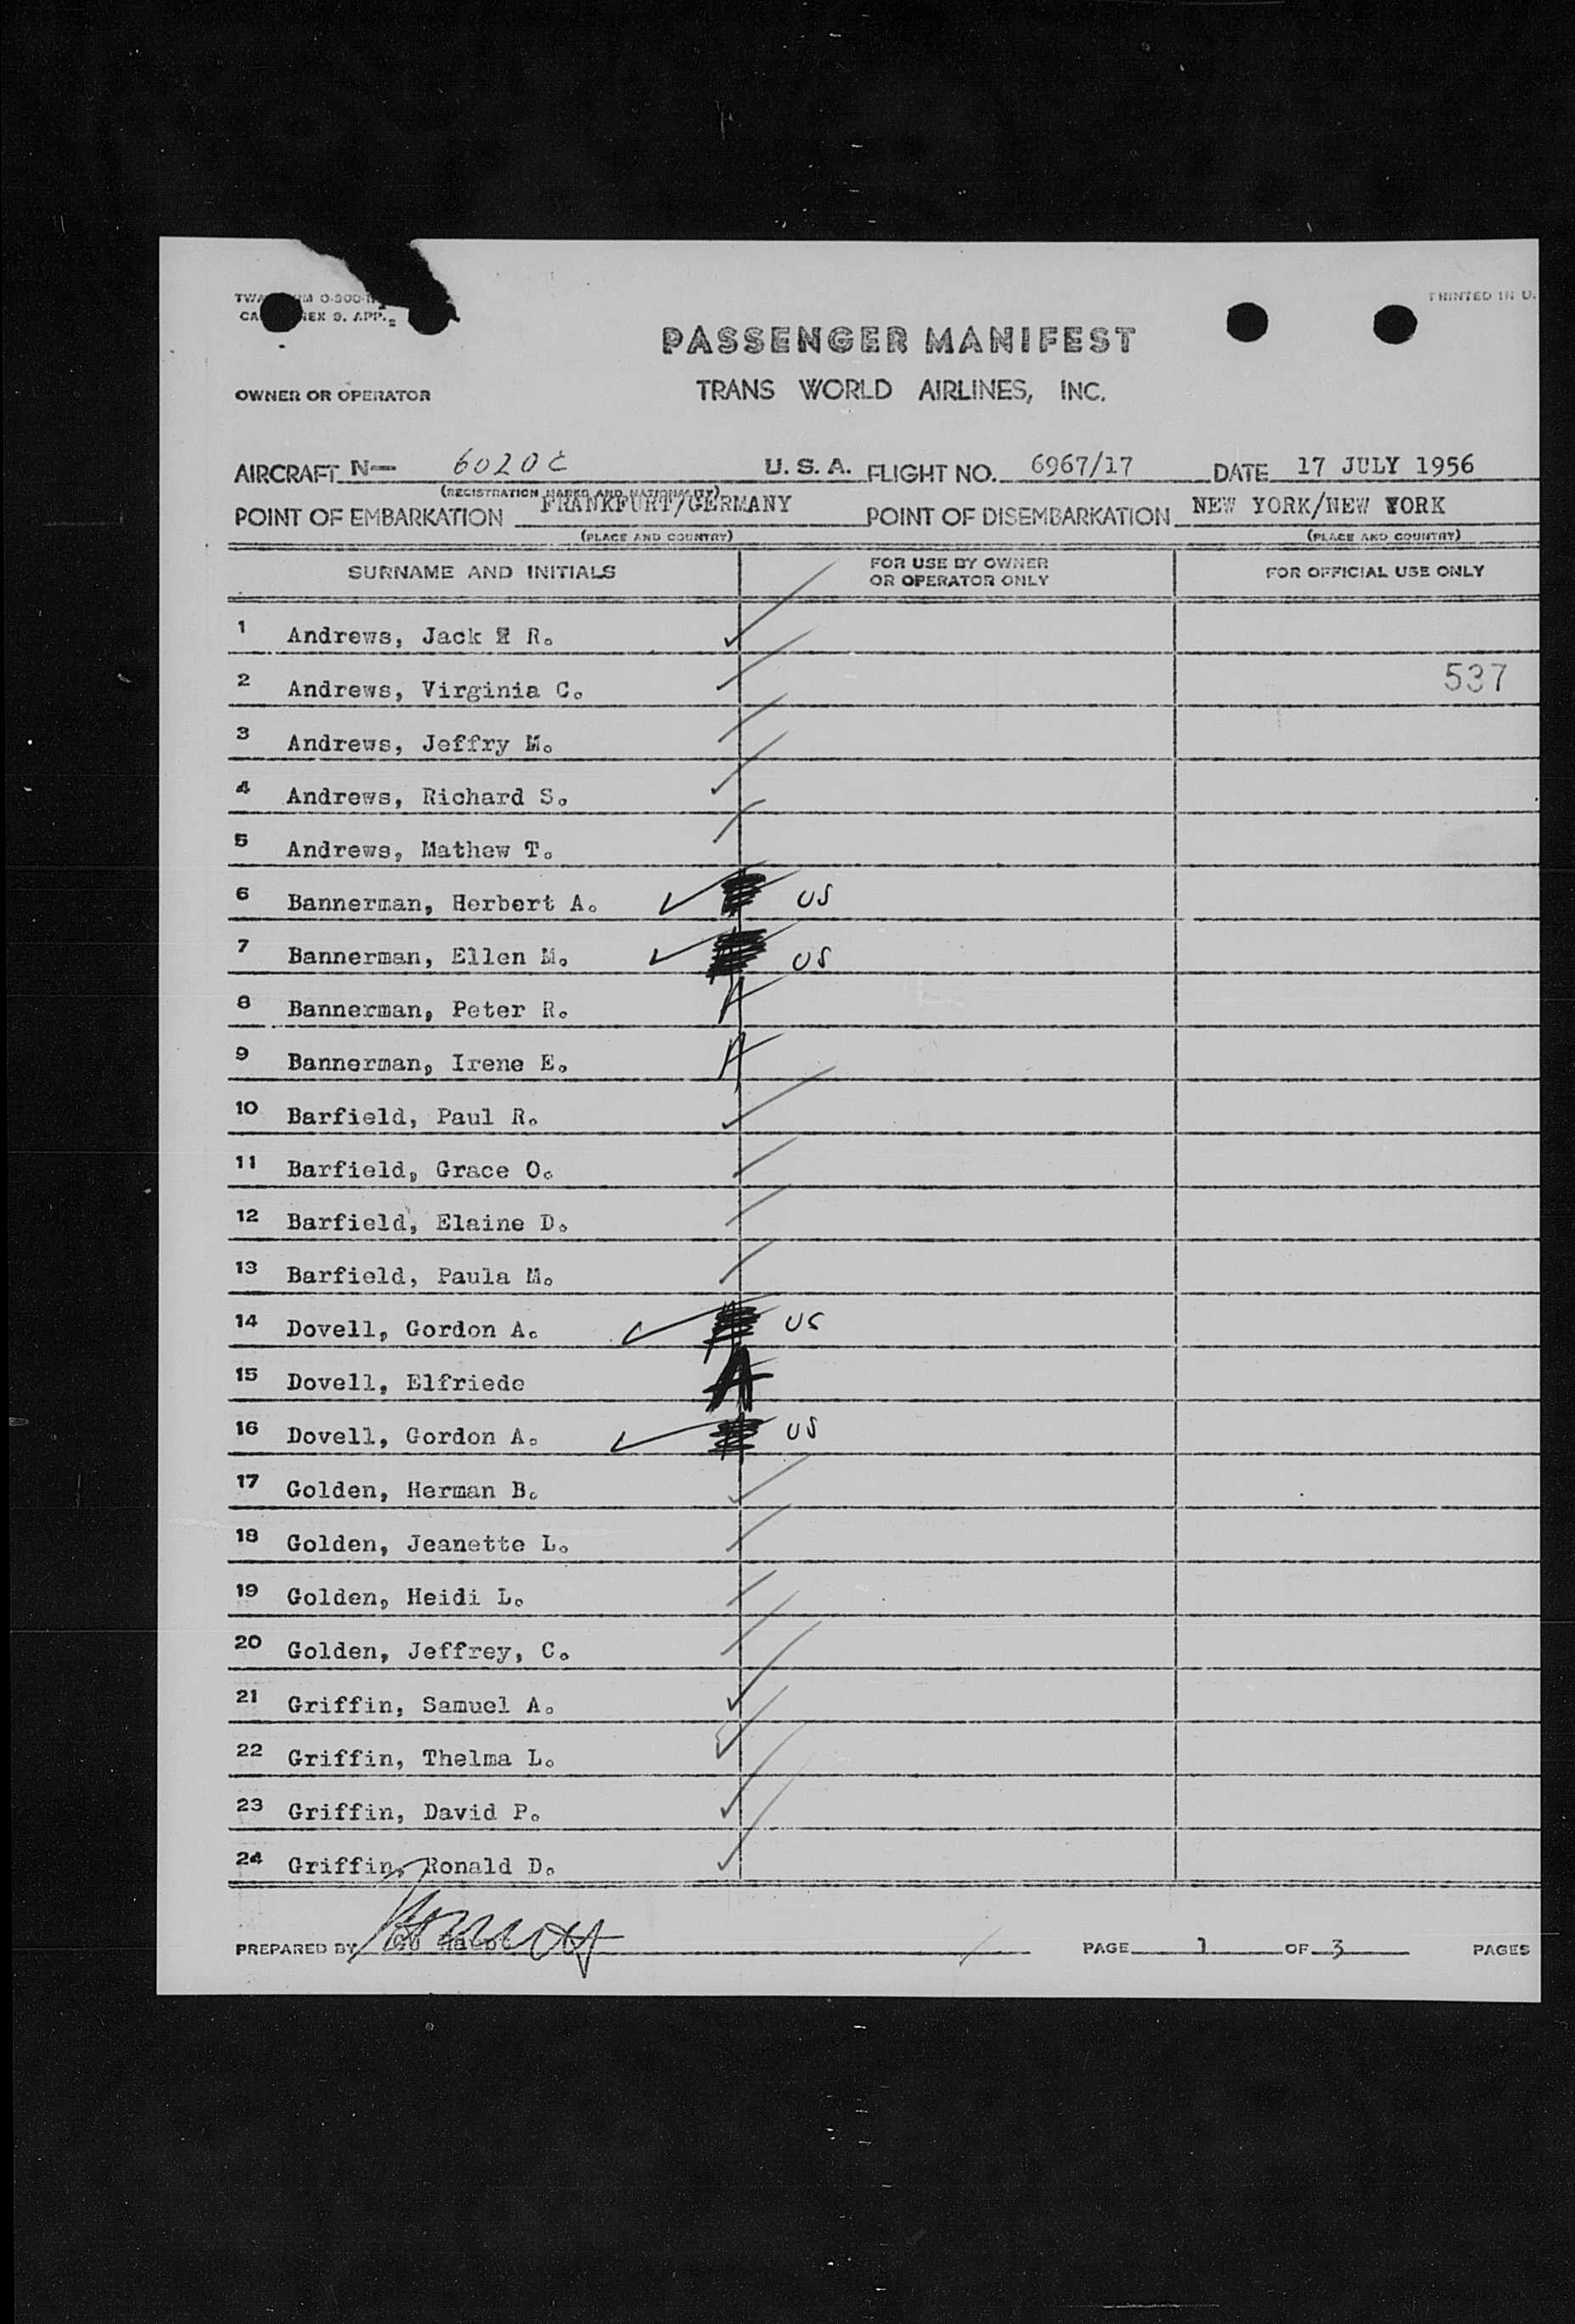 PRINTED IN U.
PASSENGER MANIFEST
OWNER OR OPERATOR
TRANS WORLD AIRLINES, INC.
AIRCRAFT N— 6020C U. S. A. FLIGHT NO. 6967/17 DATE 17 JULY 1956
(REGISTRATION MARKS AND NATIONALITY)
POINT OF EMBARKATION FRANKFURT/GERMANY POINT OF DISEMBARKATION NEW YORK/NEW YORK
(PLACE AND COUNTRY) (PLACE AND COUNTRY)
SURNAME AND INITIALS FOR USE BY OWNER OR OPERATOR ONLY FOR OFFICIAL USE ONLY
1 Andrews, Jack R.
2 Andrews, Virginia C. 537
3 Andrews, Jeffry M.
4 Andrews, Richard S.
5 Andrews, Mathew T.
6 Bannerman, Herbert A. US
7 Bannerman, Ellen M. US
8 Bannerman, Peter R. A
9 Bannerman, Irene E. A
10 Barfield, Paul R.
11 Barfield, Grace O.
12 Barfield, Elaine D.
13 Barfield, Paula M.
14 Dovell, Gordon A. US
15 Dovell, Elfriede A
16 Dovell, Gordon A. US
17 Golden, Herman B.
18 Golden, Jeanette L.
19 Golden, Heidi L.
20 Golden, Jeffrey, C.
21 Griffin, Samuel A.
22 Griffin, Thelma L.
23 Griffin, David P.
24 Griffin, Ronald D.
PREPARED BY PAGE 1 OF 3 PAGES